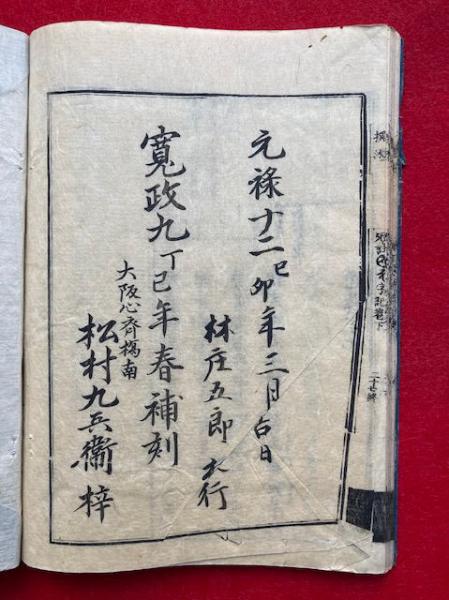 元禄十二己卯年三月吉日
林庄五郎
寛政九丁巳年春補刻
大阪心斉橋南
松村九兵衛梓